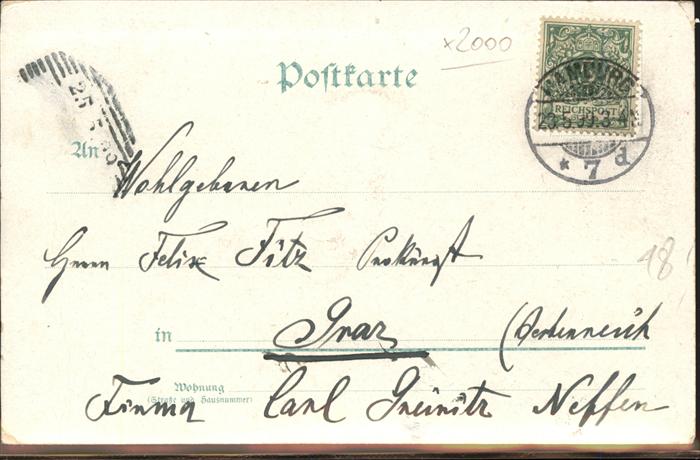 x2000
Postkarte
HAMBURG
REICHSPOST
23.5.99.3-4N
* 7 d
25.5
An Wohlgeboren
Herrn Felix Fitz Prokurist
18
in Graz (Oesterreich
Wohnung
(Straße und Hausnummer)
Firma Carl Greinitz Neffen